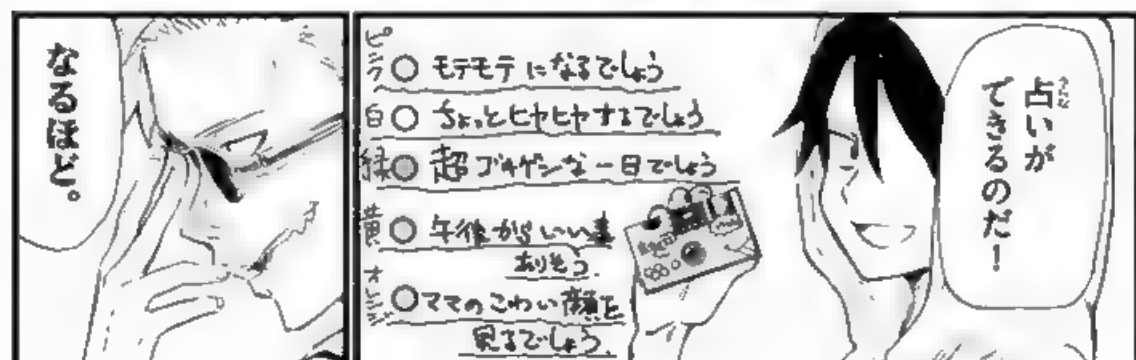 占いが
できるのだ！
ピンク○ モテモテになるでしょう
白○ ちょっとヒヤヒヤするでしょう
緑○ 超ゴキゲンな一日でしょう
黄○ 午後からいい事
ありそう
オレンジ○ ママのこわい顔を
見るでしょう
なるほど。